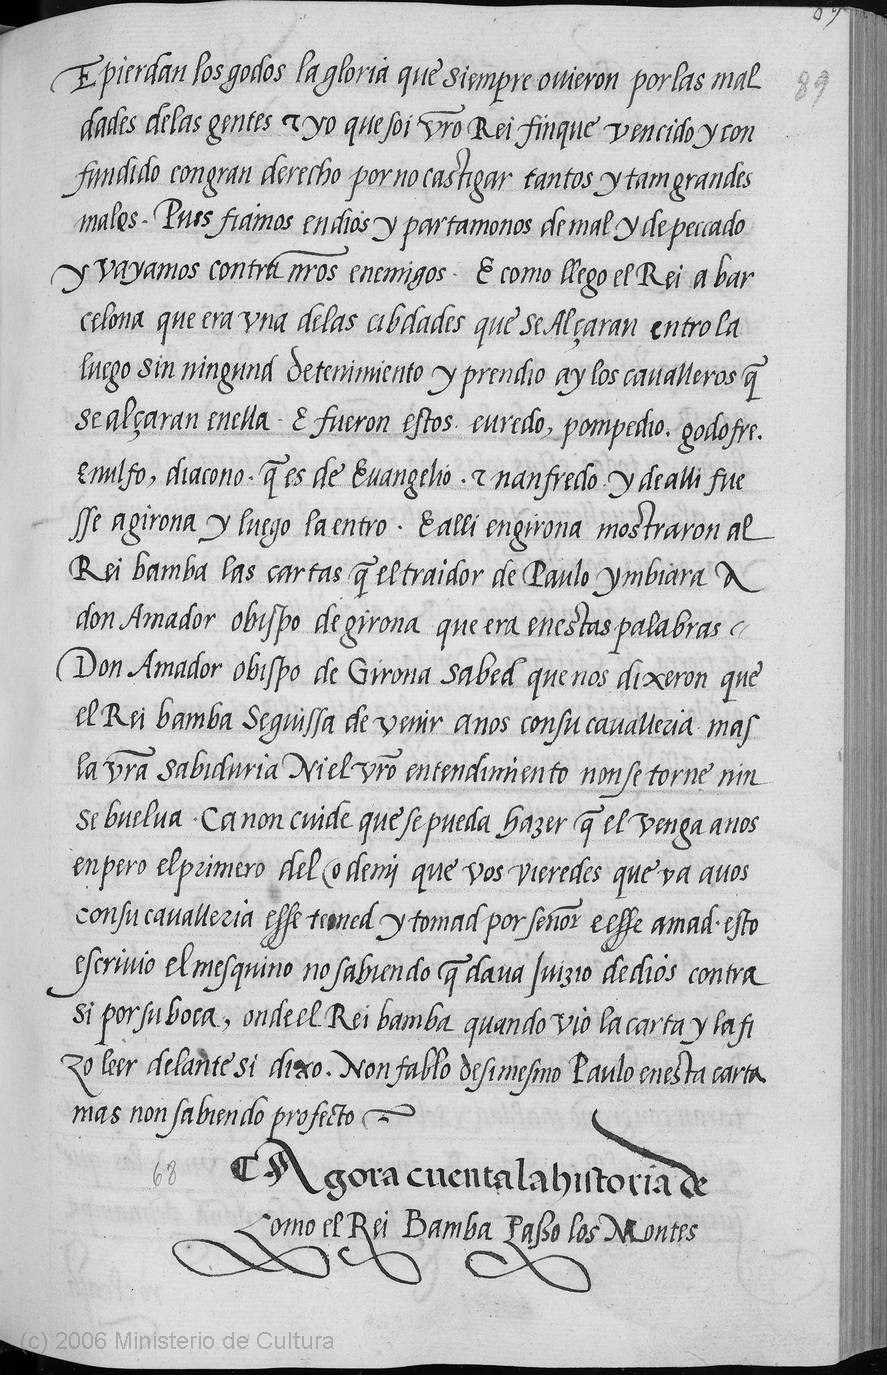 89
89
E pierdan los godos la gloria que siempre ouieron por las mal
dades delas gentes ⁊ yo que soi vr̃o Rei finque vencido y con
fundido con gran derecho por no castigar tantos y tam grandes
males. Pues fiamos en dios y partamonos de mal y de peccado
y vayamos contra nr̃os enemigos. E como llego el Rei a bar
celona que era vna delas cibdades que se Alçaran entro la
luego sin ningund detenimiento y prendio ay los caualleros q̃
se alçaran enella. E fueron estos. euredo, pompedio. godofre.
Enulfo, diacono. q̃ es de Euangelio. ⁊ nanfredo y de alli fue
sse a girona y luego la entro. E alli en girona mostraron al
Rei bamba las cartas q̃ el traidor de Paulo ymbiara A
don Amador obispo de girona que era en estas palabras
Don Amador obispo de Girona sabed que nos dixeron que
el Rei bamba se guissa de venir a nos con su caualleria mas
la vr̃a sabiduria Ni el vr̃o entendimiento non se torne nin
se buelua. Ca non cuide que se pueda hazer q̃ el venga a nos
en pero el primero del o de mj que vos vieredes que va a uos
con su caualleria esse tened y tomad por señor e esse amad. esto
escriuio el mesquino no sabiendo q̃ daua Juizio de dios contra
si por su boca, onde el Rei bamba quando vio la carta y la fi
zo leer delante si dixo. Non fablo desi mesmo Paulo en esta carta
mas non sabiendo profecto
68
Agora cuenta la historia de
Como el Rei Bamba Passo los Montes
(c) 2006 Ministerio de Cultura